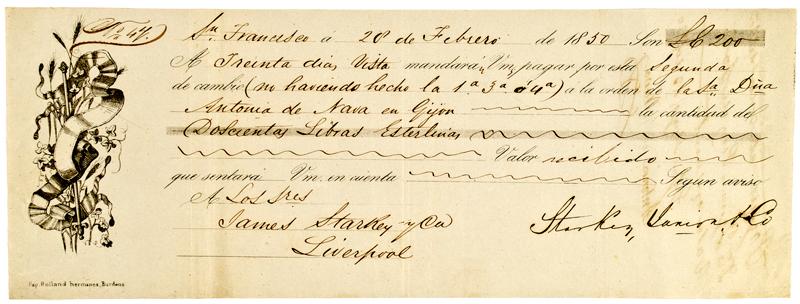 Nº 247.
Sn. Francisco á 28 de Febrero de 1850 Son L.E 200
A Treinta dias Vista mandarán Vm. pagar por esta Segunda
de cambio (no haviendo hecho la 1.ª 3.ª ó 4.ª) á la orden de la Sra. Dña
Antonia de Nava en Gijon la cantidad de
Doscientas Libras Esterlinas
Valor recibido
que sentará Vm. en cuenta Segun aviso
A Los Sres
James Starkey y Ca
Liverpool
Starkey, Janion & Co
Pap. Rolland hermanos, Burdeos